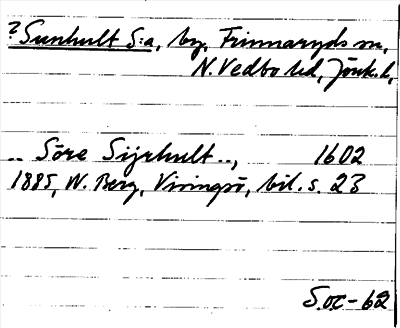 ? Sunhult S:a, by, Finnaryds sn,
N. Vedbo hd, Jönk. l,
.. Söre Sijrhult ..,    1602
1885, W. Berg, Visingsö, bil. s. 23
S.OC-62